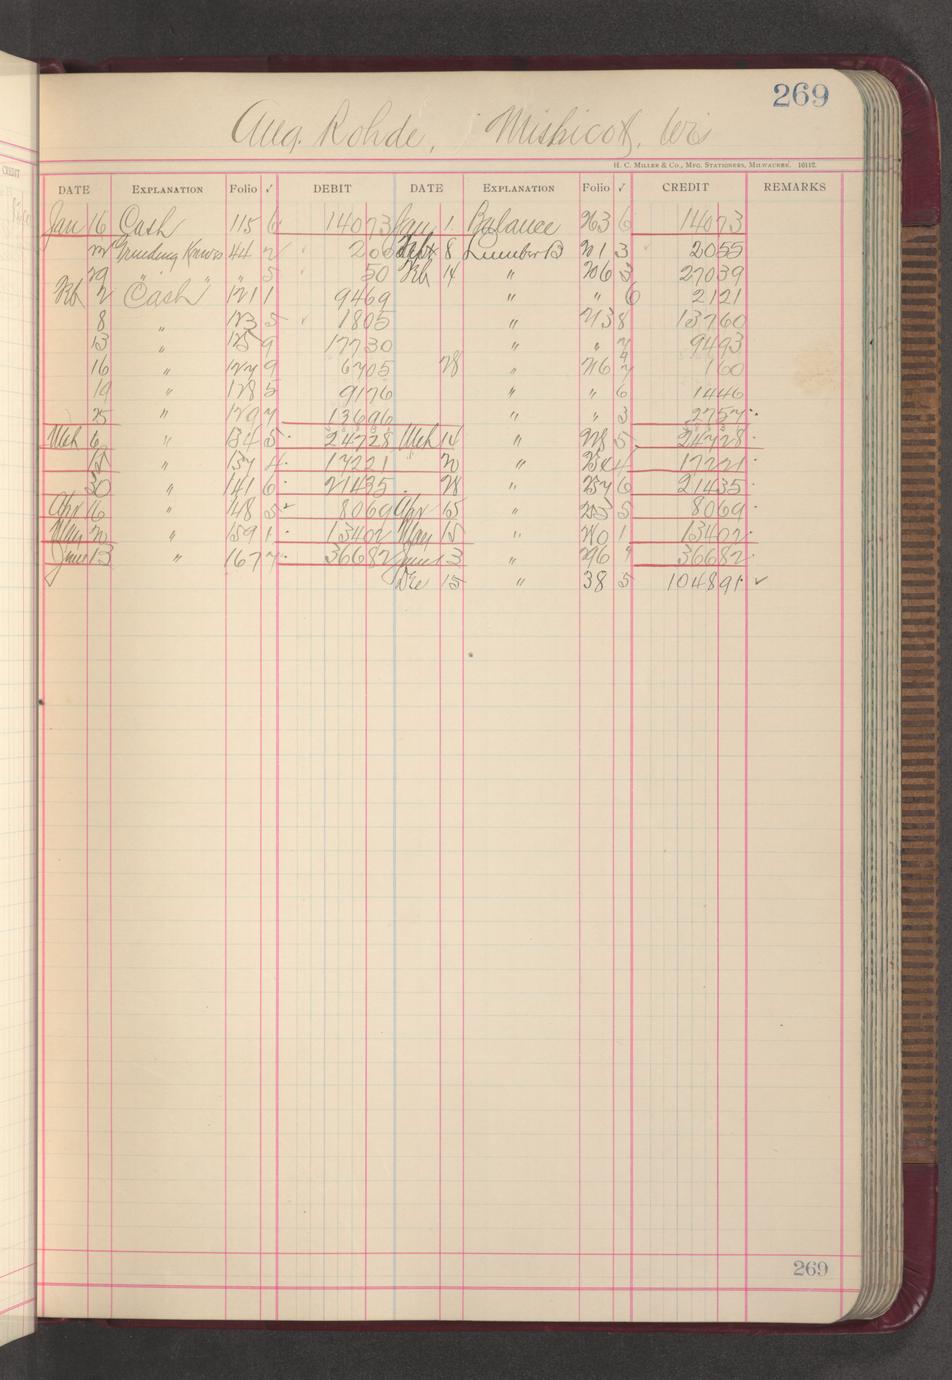 269
Aug. Rohde, Mishicott, Wis
H. C. Miller & Co., Mfg. Stationers, Milwaukee. 16112.
DATE EXPLANATION Folio √ DEBIT DATE EXPLANATION Folio √ CREDIT REMARKS
Jan 16 Cash 115 6 14073 Jan 1 Balance 263 6 14073
Grinding Knives 44 2 200 8 Lumber B 213 2055
29 " " " 5 50 Feb 14 " 206 3 27039
Feb 2 Cash " 121 1 9469 " " 6 2121
8 " 123 5 1805 " 213 8 13760
13 " 125 9 17730 " " 7 9493
16 " 127 9 6705 28 " 216 160
19 " 128 5 9176 " " 6 1446
25 " 129 7 13696 " " 3 2757
Mch 6 " 134 5 24728 Mch 14 " 228 5 24728
12 " 137 4 17221 20 " 234 4 17221
30 " 141 6 21435 28 " 237 6 21435
Apr 16 " 148 5 8069 Apr 15 " 253 5 8069
May 20 " 159 1 13402 May 15 " 270 1 13402
June 13 " 167 7 36682 June 13 " 296 36682
Dec 15 " 38 5 104891 ✓
269